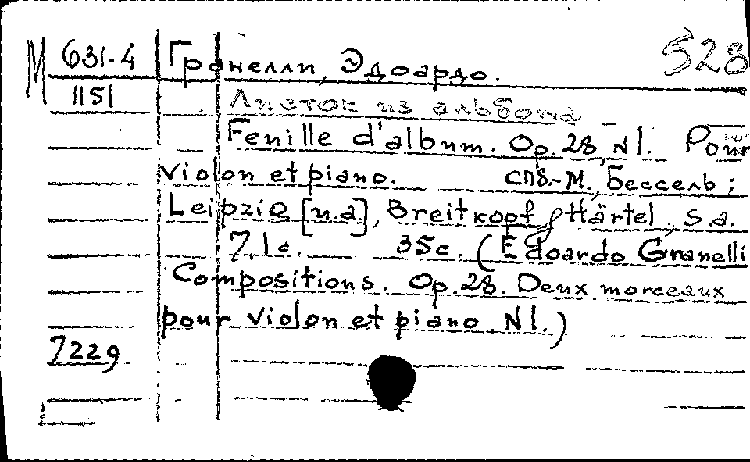 М 631-4 Гранелли, Эдоардо. 528
1151 Листок из альбома
Feuille d'album. Op. 28 N1. Pour
violon et piano. СПб.-М., Бессель;
Leipzig [u.a], Breitkopf & Härtel, s.a.
7, 1 с. 35 с. (Edoardo Granelli
Compositions. Op. 28. Deux morceaux
pour violon et piano. N1.)
7229